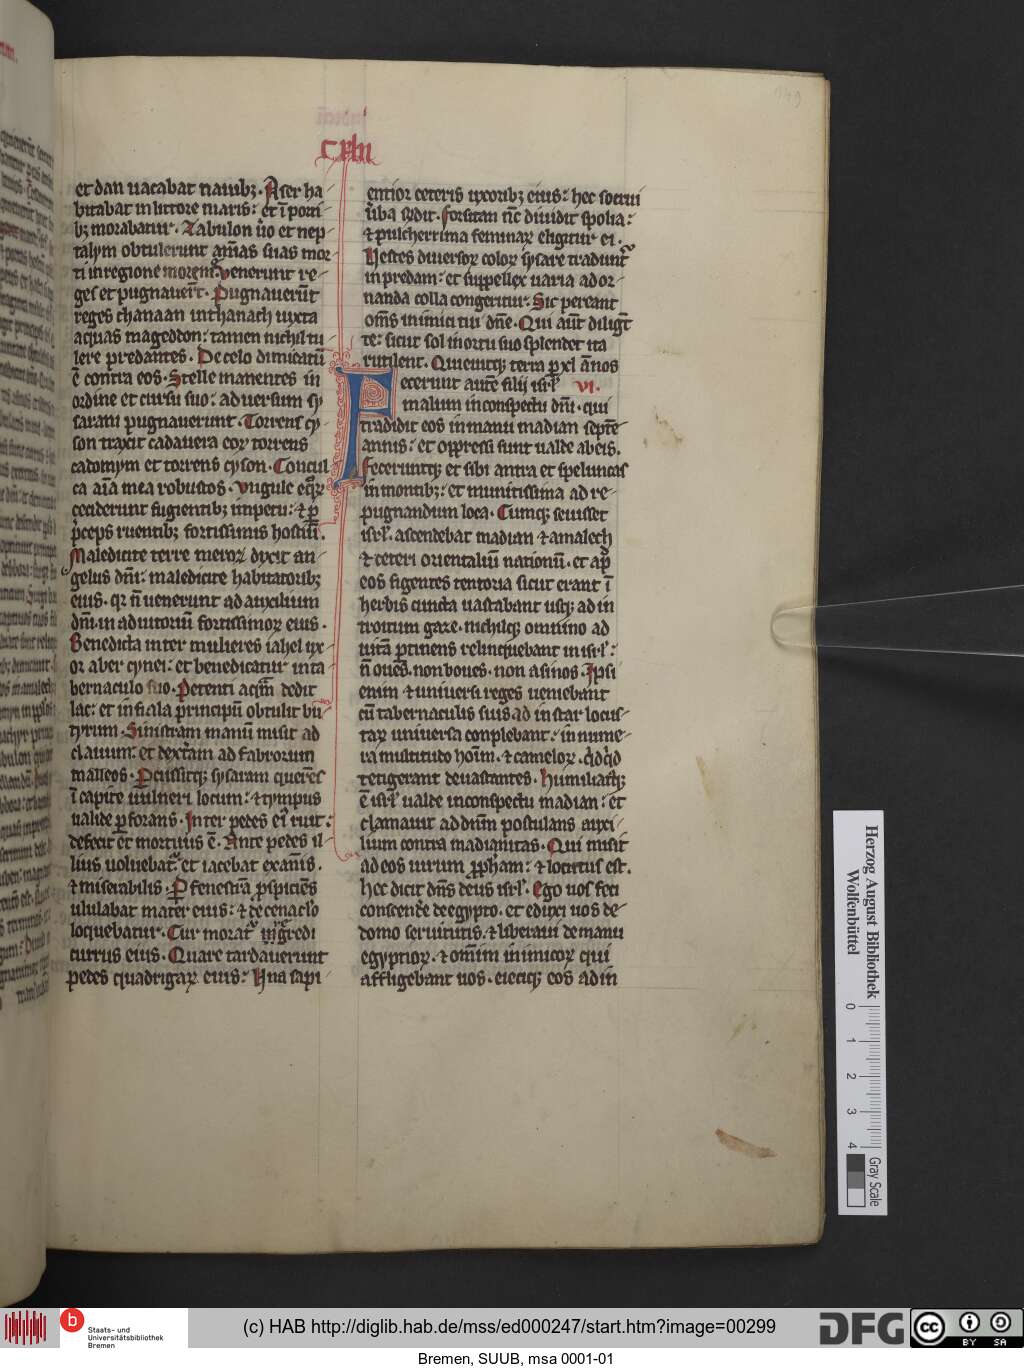 et dan uacabat nauibꝫ. Aser ha-
bitabat in littore maris: et ī porti-
bꝫ morabatur. Zabulon ůo et nep-
talym obtulerunt aīas suas mor-
ti in regione morem̄. Venerunt re-
ges et pugnauer̄t. Pugnauerūt
reges chanaan in thanach iuxta
aquas mageddon: tamen nichil tu-
lere predantes. De celo dimicatū
ē contra eos. Stelle manentes in
ordine et cursu suo: aduersum sy-
saram pugnauerunt. Torrens cy-
son traxit cadauera eoꝝ torrens
cadomym et torrens cyson. Concul-
ca aīa mea robustos. Vngule equoꝝ
ceciderunt fugientibꝫ impetu: ⁊ ꝑ
p̄ceps ruentibꝫ fortissimis hostiū.
Maledicite terre meroꝝ dixit an-
gelus dn̄i: maledicite habitatoribꝫ
eius. qꝛ n̄ uenerunt ad auxilium
dn̄i. in adiutoriū fortissimoꝝ eius.
Benedicta inter mulieres iahel ux-
or aber cynei: et benedicatur in ta-
bernaculo suo. Petenti aq̄m dedit
lac: et in fiala principū obtulit bu-
tyrum. Sinistram manū misit ad
clauum: et dext̄am ad fabrorum
malleos. Percussitqꝫ sysaram querēs
ī capite uulneri locum: ⁊ tympus
ualide ꝑforans. Inter pedes eiꝰ ruit:
defecit et mortuus ē. Ante pedes il-
lius uoluebat᷑ et iacebat exaīs.
⁊ miserabilis. Ꝑ fenestrā ꝓspiciēs
ululabat mater eius: ⁊ de cenaclo
loquebatur. Cur morat᷑ ingredi
currus eius. Quare tardauerunt
pedes quadrigaꝝ eius: Una sapi-
cxlii
entior ceteris uxoribꝫ eius: hec socrui
ůba reddit. Forsitan nc̄ diuidit spolia:
⁊ pulcherrima feminaꝝ eligitur ei.
Vestes diuersoꝝ coloꝝ sysare tradunt᷑
in predam: et suppellex uaria ad or-
nanda colla congeritur. Sic pereant
om̄s inimici tui dn̄e. Qui aūt diligūt
te: sicut sol in ortu suo splendet ita
rutilent. Quieuitqꝫ terra ꝑ xl an̄os
Fecerunt autē filij isrł VI.
malum in conspectu dn̄i. qui
tradidit eos in manu madian septē
annis: et oppressi sunt ualde ab eis.
Feceruntqꝫ et sibi antra et speluncas
in montibꝫ: et munitissima ad re-
pugnandum loca. Cumqꝫ seuisset
isrł. ascendebat madian ⁊ amalech
⁊ ceteri orientaliū nationū. et apud
eos figentes tentoria sicut erant ī
herbis cuncta uastabant usqꝫ ad in-
troitum gaze. nichilqꝫ omnino ad
uitā ꝑtinens relinquebant in isrł:
n̄ oues. non boues. non asinos. Ipsi
enim ⁊ uniuersi reges ueniebant
cū tabernaculis suis ad instar locus-
taꝝ uniuersa conplebant: innume-
ra multitudo hoīm. ⁊ cameloꝝ. qͥdqͥd
tetigerant deuastantes. Humiliatꝰqꝫ
ē isrł ualde in conspectu madian: et
clamauit ad dnm̄ postulans auxi-
lium contra madianitas. Qui misit
ad eos uirum ꝓpham: ⁊ locutus est.
Hec dicit dn̄s deus isrł. Ego uos feci
conscende de egypto. et eduxi uos de
domo seruitutis. ⁊ liberaui de manu
egyptioꝝ. ⁊ omīm inimicoꝝ qui
affligebant uos. eiecique eos ad in-
149
Herzog August Bibliothek
Wolfenbüttel
0 1 2 3 4
Gray Scale
b Staats- und
Universitätsbibliothek
Bremen
(c) HAB http://diglib.hab.de/mss/ed000247/start.htm?image=00299
DFG
cc BY SA
Bremen, SUUB, msa 0001-01